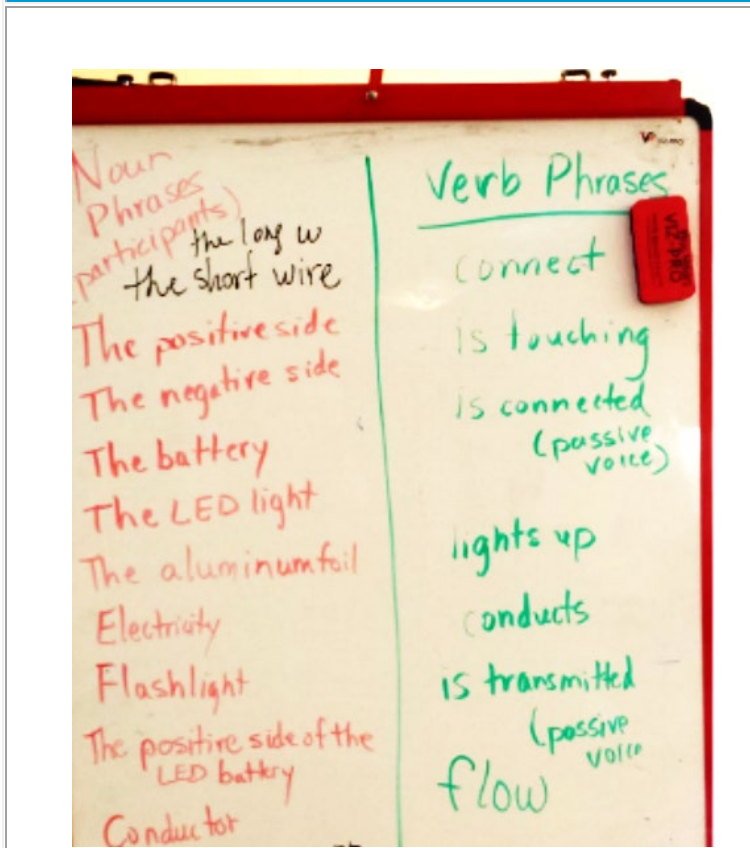 Noun
Phrases
(participants)
the long w
the short wire
The positive side
The negative side
The battery
The LED light
The aluminum foil
Electricity
Flashlight
The positive side of the
LED battery
Conductor
Verb Phrases
VIZ-PRO
connect
is touching
is connected
(passive
voice)
lights up
conducts
is transmitted
(passive
voice
flow